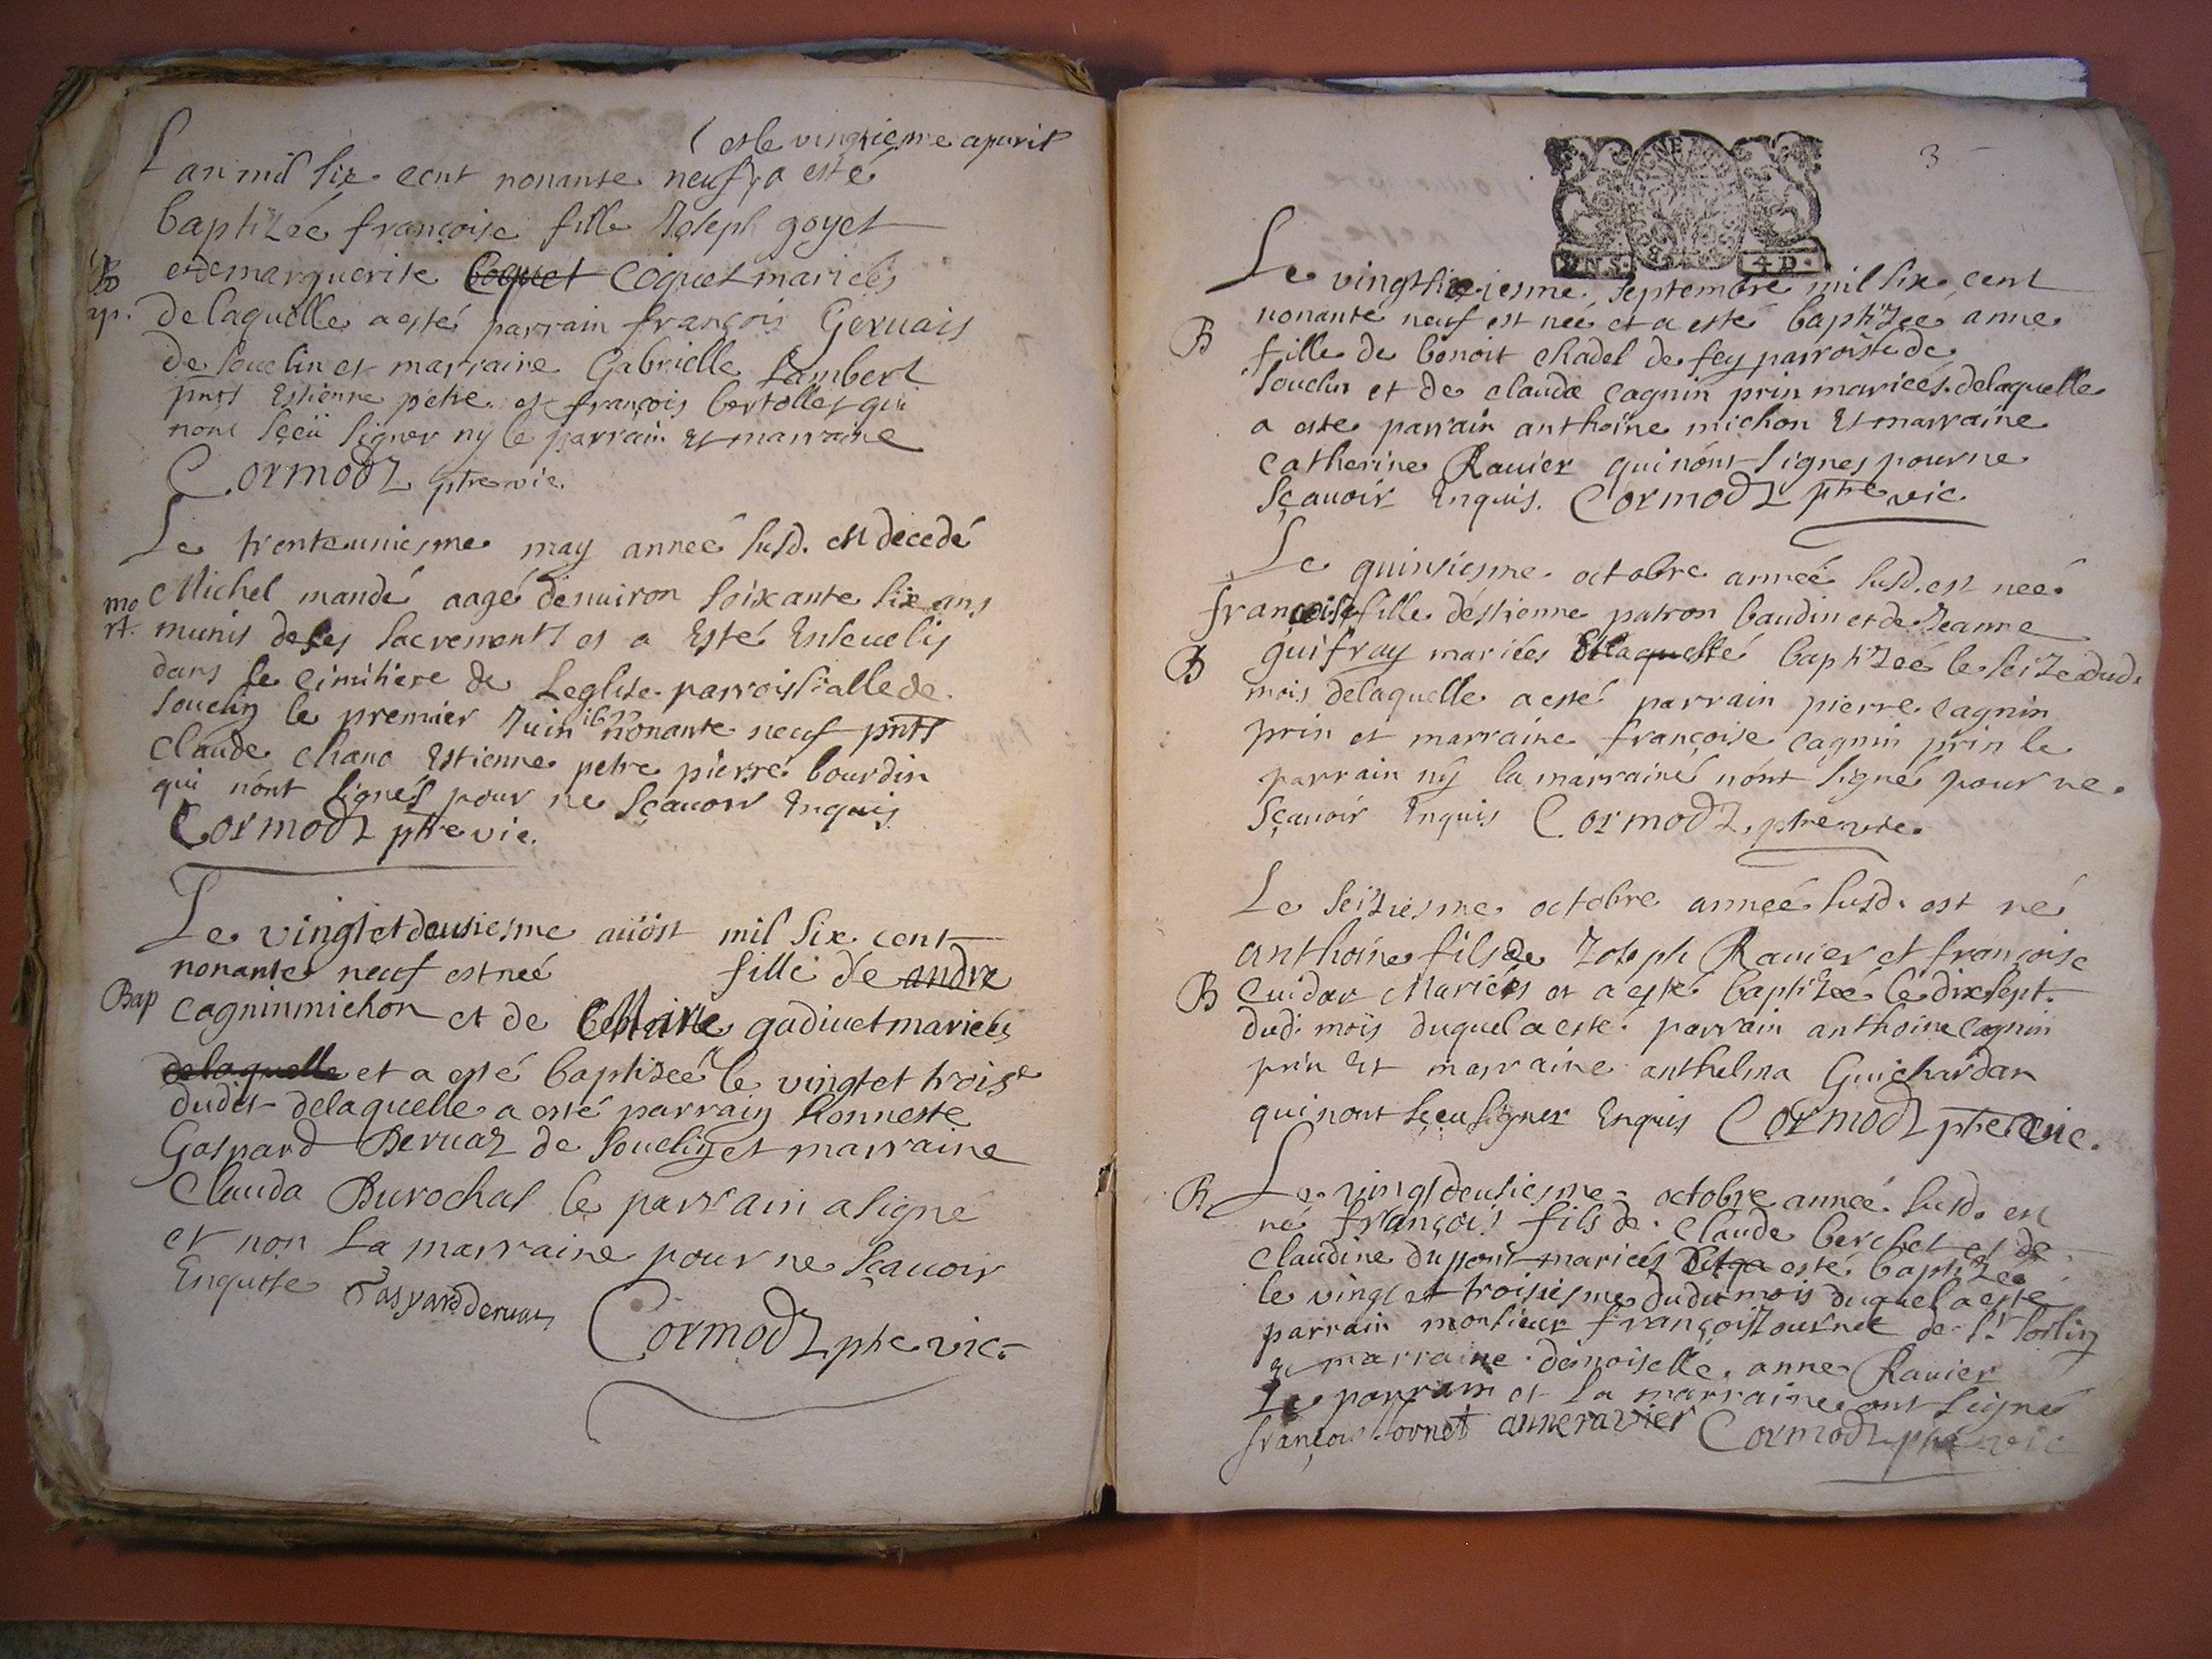 et le vingtieme apvril
Lan mil six cent nonante neuf, a esté
baptizée françoise fille Joseph goyet
B et de marguerite Coquet Coquet mariés
ap. de laquelle a esté parrain françois Gervais
de souclin et marraine Gabrielle Lambert
pnts Estienne petre et françois bertollet qui
nont sçeü signer ny le parrain Et marraine
Cormodz ptre vic.
Le trenteuniesme may anneé susd. est decedé
mo Michel mandé aagé denuiron soixante six ans
rt. munis de ses sacrements et a Esté Enseuelis
dans le cimitiere de Leglise parroissialle de
souclin le premier Juin 1699 nonante neuf pnts
Claude chano Estienne petre pierre bourdin
qui nont signés pour ne sçauoir Enquis
Cormodz ptre vic.
Le vingtetdeusiesme aüost mil six cent
nonante neuf est neé fille de andre
Bap cagnin michon et de Marie gadiuet mariés
delaquelle et a esté baptizeé le vingtet trois e
dudit delaquelle a esté parrain honneste
Gaspard Deruaz de souclin et marraine
Clauda Burochat le parrain a signé
et non La marraine pour ne sçauoir
Enquise Gaspard deruaz
Cormodz ptre vic.
3
GNE
4 D.
Le vingtsixiesme septembre mil six cent
nonante neuf est neé et a esté baptizee anne
B fille de benoit chadel de fay parroisse de
souclin et de claudæ cagnin prin marieés delaquelle
a este parrain anthoine michon Et marraine
catherine Rauier qui nont signes pour ne
sçauoir Enquis. Cormodz ptre vic.
Le quinsiesme octobre anneé susd. est neé
françoise fille déstienne patron baudin et de Jeanne
B guifray mariées et a esté baptizeé le seize dud.
mois delaquelle a esté parrain pierre cagnin
prin et marraine françoise cagnin prin le
parrain nÿ la marraine nont signé pour ne
sçauoir Enquis Cormodz, ptre vic.
Le seiziesme octobre anneé susd. est né
anthoine fils de Joseph Rauier et françoise
B Cuidar Mariés et a esté baptizeé le dixsept
dud. mois duquel a esté parrain anthoine cagnin
prin Et marraine anthelma Guichardan
qui nont sçeu signer Enquis Cormodz ptre vic.
B Le vingtdeusiesme octobre anneé susd. est
né françois fils de Claude berchet et de
Claudine dupont mariés et a esté baptizeé
le vingt et troisiesme dudit mois duquel a esté
parrain monsieur françois Tournet de st sorlin
et marraine demoiselle anne Rauier
Le parrain et La marraine ont signé
françois tornet anne ravier Cormodz ptre vic